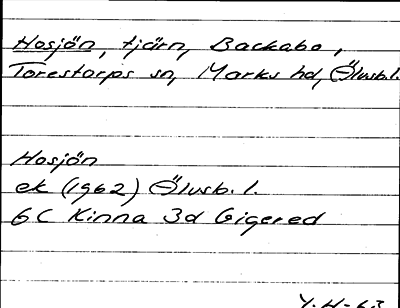 Hosjön, tjärn, Backabo,
Torestorps sn, Marks hd, Älvsb.l.
Hosjön
ek (1962) Älvsb. l.
6C Kinna 3d Gigered
Y.H-63